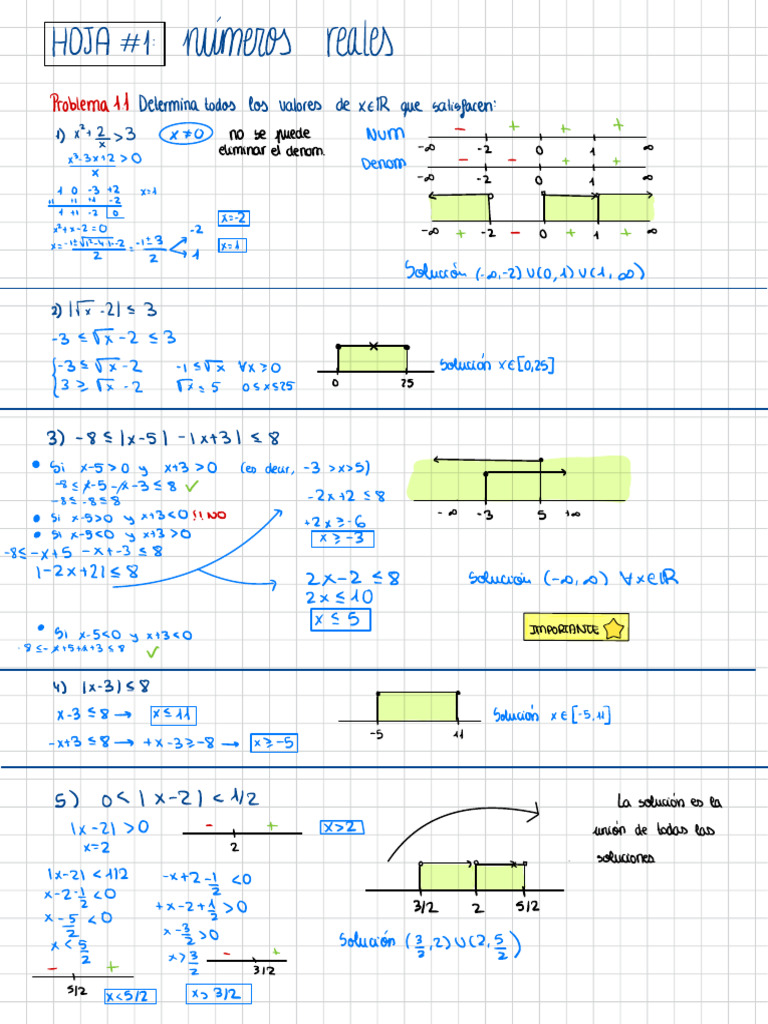 HOJA #1: números reales
Problema 1.1 Determina todos los valores de x∈ℝ que satisfacen:
1) x² + 2/x > 3
x ≠ 0
no se puede
eliminar el denom.
x³-3x+2/x > 0
1 0 -3 +2
x=1
1 +1 -2 0
x²+x-2=0
= -1±3/2
-2
1
x=-2
x=1
Num
- + + +
-∞ -2 0 1 ∞
Denom
- - + +
-∞ -2 0 1 ∞
-∞ + -2 - 0 + 1 + ∞
Solución (-∞,-2)∪(0,1)∪(1,∞)
2) |√x -2| ≤ 3
-3 ≤ √x -2 ≤ 3
-3 ≤ √x -2
-1 ≤ √x ∀x ≥ 0
3 ≥ √x -2
√x ≤ 5 0≤x≤25
0 25
Solución x∈[0,25]
3) -8 ≤ |x-5| -|x+3| ≤ 8
• Si x-5>0 y x+3>0 (es decir, -3 >x>5)
-8 ≤ x-5 -x-3 ≤ 8 ✓
-8 ≤ -8 ≤ 8
• Si x-5>0 y x+3<0 !! NO
• Si x-5<0 y x+3>0
-8 ≤ -x+5 -x+-3 ≤ 8
|-2x+2| ≤ 8
-2x+2 ≤ 8
+2x ≥ -6
x ≥ -3
2x-2 ≤ 8
2x ≤ 10
x ≤ 5
• Si x-5<0 y x+3<0
-8 ≤ -x+5+x+3 ≤ 8 ✓
-∞ -3 5 +∞
Solución (-∞,∞) ∀x∈ℝ
IMPORTANTE
4) |x-3| ≤ 8
x-3 ≤ 8 → x ≤ 11
-x+3 ≤ 8 → +x-3 ≥ -8 → x ≥ -5
-5 11
Solución x∈[-5,11]
5) 0 < |x-2| < 1/2
|x-2| > 0
x=2
- +
2
x>2
|x-2| < 1/2
x-2-1/2 < 0
x-5/2 < 0
x < 5/2
- +
5/2
x<5/2
-x+2-1/2 < 0
+x-2+1/2 > 0
x-3/2 > 0
x > 3/2
- +
3/2
x> 3/2
La solución es la
unión de todas las
soluciones
3/2 2 5/2
Solución (3/2,2)∪(2,5/2)